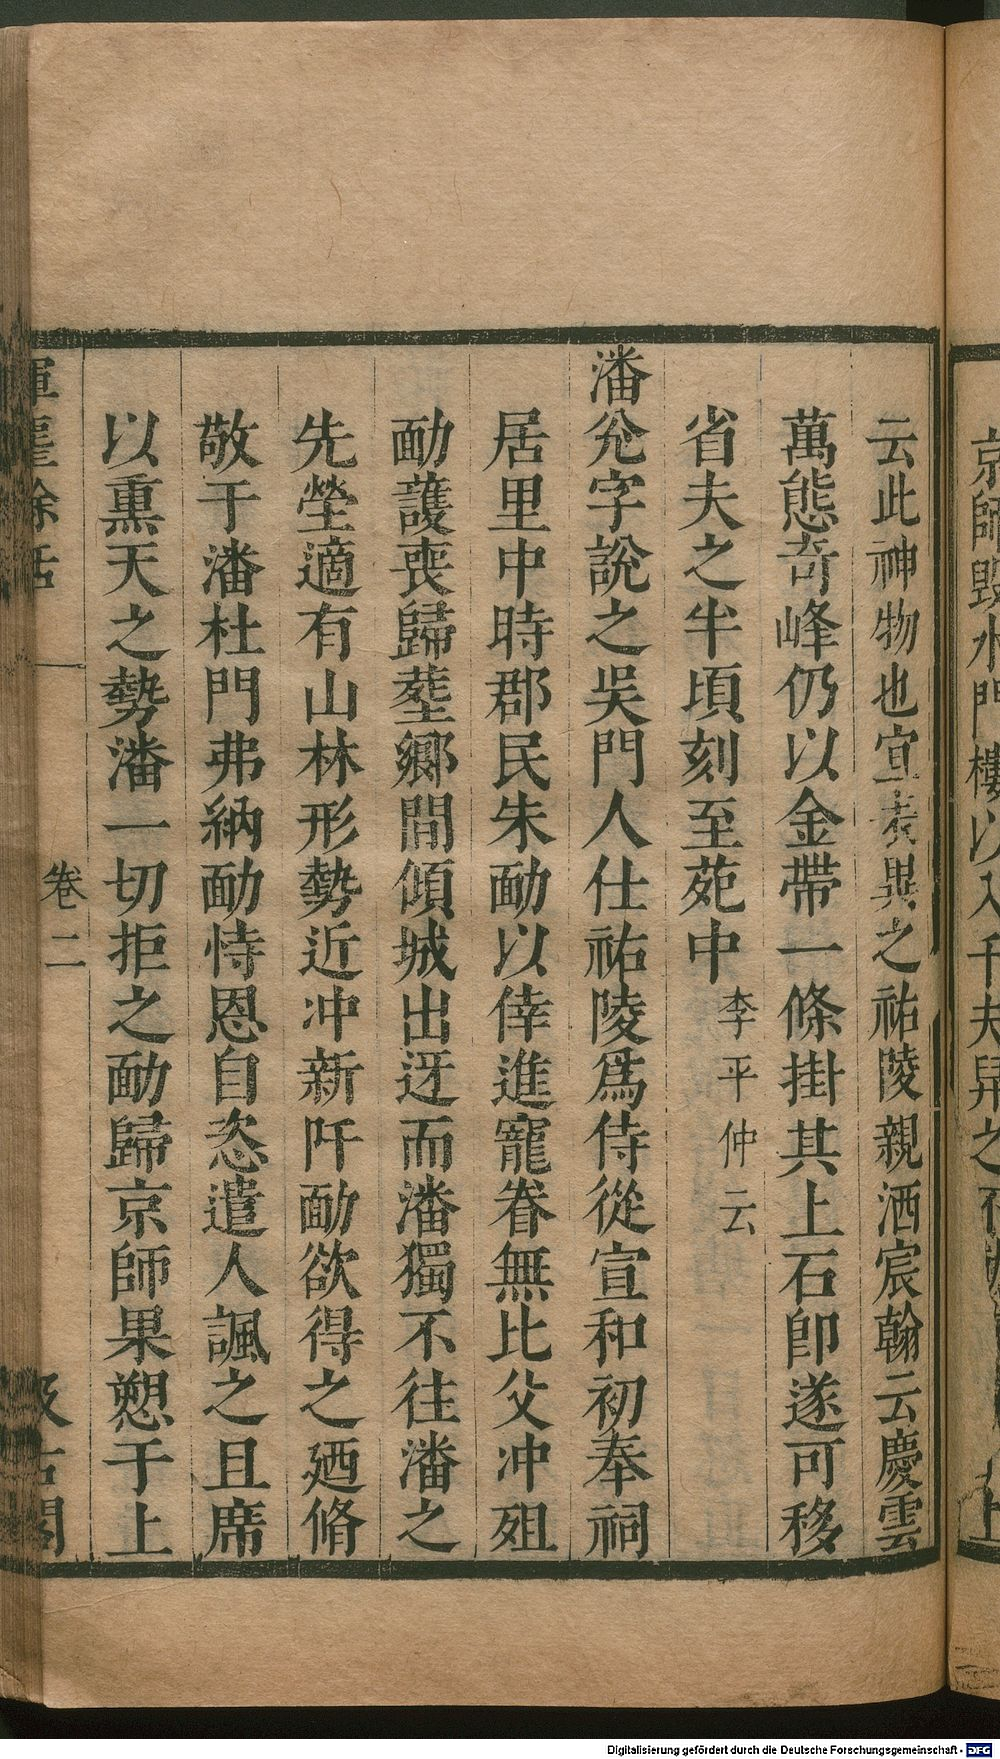 京師毀水門樓以入千夫舁之不
上
云此神物也宜表異之祐陵親洒宸翰云慶雲
萬態奇峰仍以金帶一條掛其上石卽遂可移
省夫之半頃刻至苑中李平仲云
潘兊字說之吳門人仕祐陵爲侍從宣和初奉祠
居里中時郡民朱勔以倖進寵眷無比父冲殂
勔護喪歸塟鄉閭傾城出迓而潘獨不往潘之
先塋適有山林形勢近冲新阡勔欲得之廼脩
敬于潘杜門弗納勔恃恩自恣遣人諷之且席
以熏天之勢潘一切拒之勔歸京師果愬于上
揮麈餘話
卷二
汲古閣
Digitalisierung gefördert durch die Deutsche Forschungsgemeinschaft - DFG